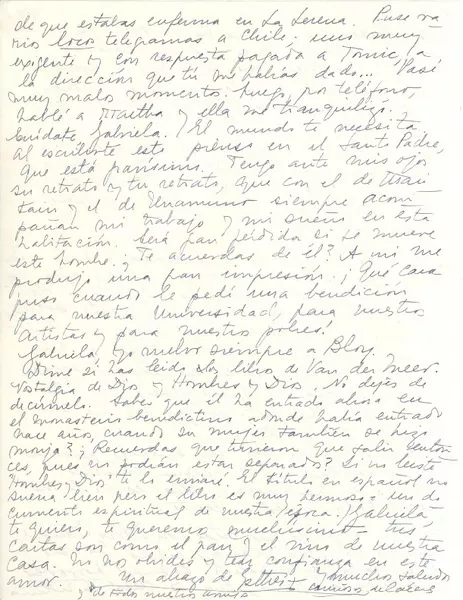 de que estabas enferma en La Serena. Puse va-
rios locos telegramas a Chile; uno muy
exigente y con respuesta pagada a Tomic, a
la dirección que tú me habías dado... Pasé
muy malos momentos. Luego, por teléfono,
hablé a Martha y ella me tranquilizó.
Cuídate, Gabriela. El mundo te necesita
Al escribirte esto pienso en el Santo Padre,
que está gravísimo. Tengo ante mis ojos
su retrato y tu retrato, que con el de Mari-
tain y el de Unamuno siempre acom-
pañan mi trabajo y mi sueño en esta
habitación. Será gran pérdida si se muere
este hombre. ¿Te acuerdas de él? A mí me
produjo una gran impresión. ¡Qué cara
puso cuando le pedí una bendición
para nuestra Universidad, para nuestros
artistas y para nuestros pobres!
Gabriela, yo vuelvo siempre a Bloy.
Dime si has leído los libros de Van der Meer.
Nostalgia de Dios y Hombres y Dios. No dejes de
decírmelo. Saber que él ha entrado ahora en
el monasterio benedictino adonde había entrado
hace años, cuando su mujer también se hizo
monja? ¿Recuerdas que tuvieron que salir enton-
ces, pues no podían estar separados? Si no leíste
"Hombres y Dios" te lo enviaré. El título en español no
suena bien pero el libro es muy hermoso: un do-
cumento espiritual de nuestra época. Gabriela
te quiero, te queremos muchísimo tus
cartas son como el pan y el vino de nuestra
casa. No nos olvides y ten confianza en este
amor. Un abrazo de Esther y muchos saludos
y de todos nuestros amigos